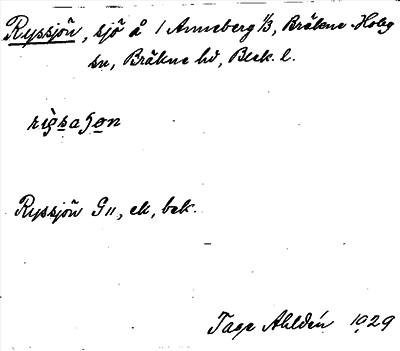 Ryssjön, sjö å 1 Anneberg 1/3, Bräkne-Hoby
sn, Bräkne hd, Blek. l.
Ryssjön G11, ek, bek.
Tage Ahldén 1929